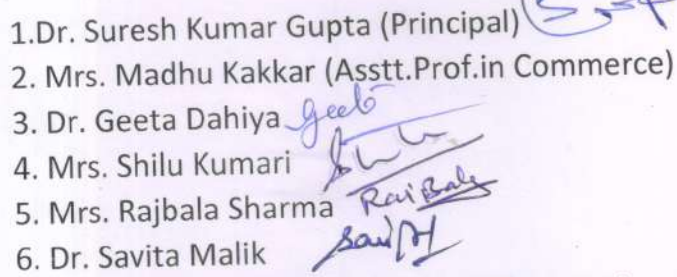 1.Dr. Suresh Kumar Gupta (Principal)
2. Mrs. Madhu Kakkar (Asstt.Prof.in Commerce)
3. Dr. Geeta Dahiya Geeta
4. Mrs. Shilu Kumari
5. Mrs. Rajbala Sharma RajBala
6. Dr. Savita Malik